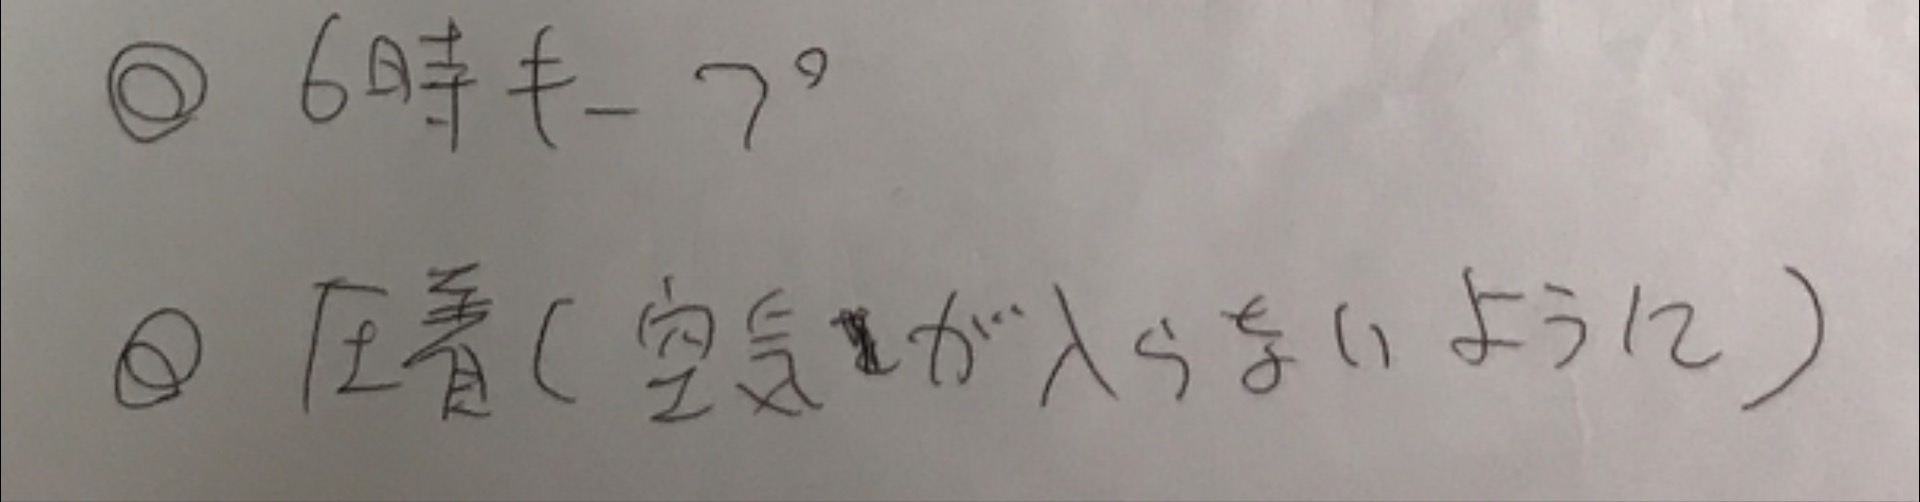 ◎ 6時モープ
◎ 圧着(空気が入らないように)